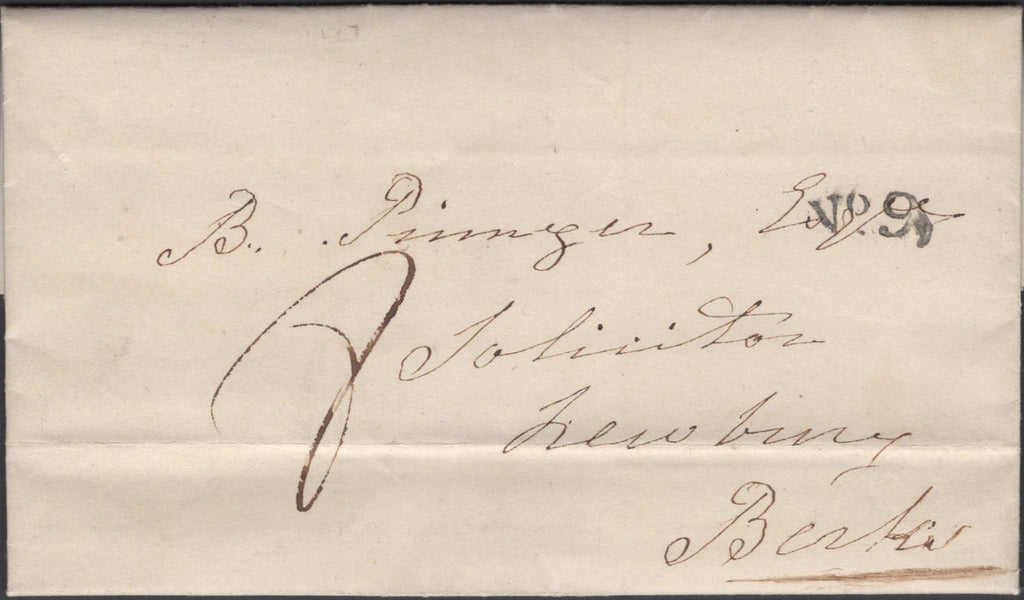 B. Pinneger, Esqre
No. 9
8
Solicitor
Newbury
Berks